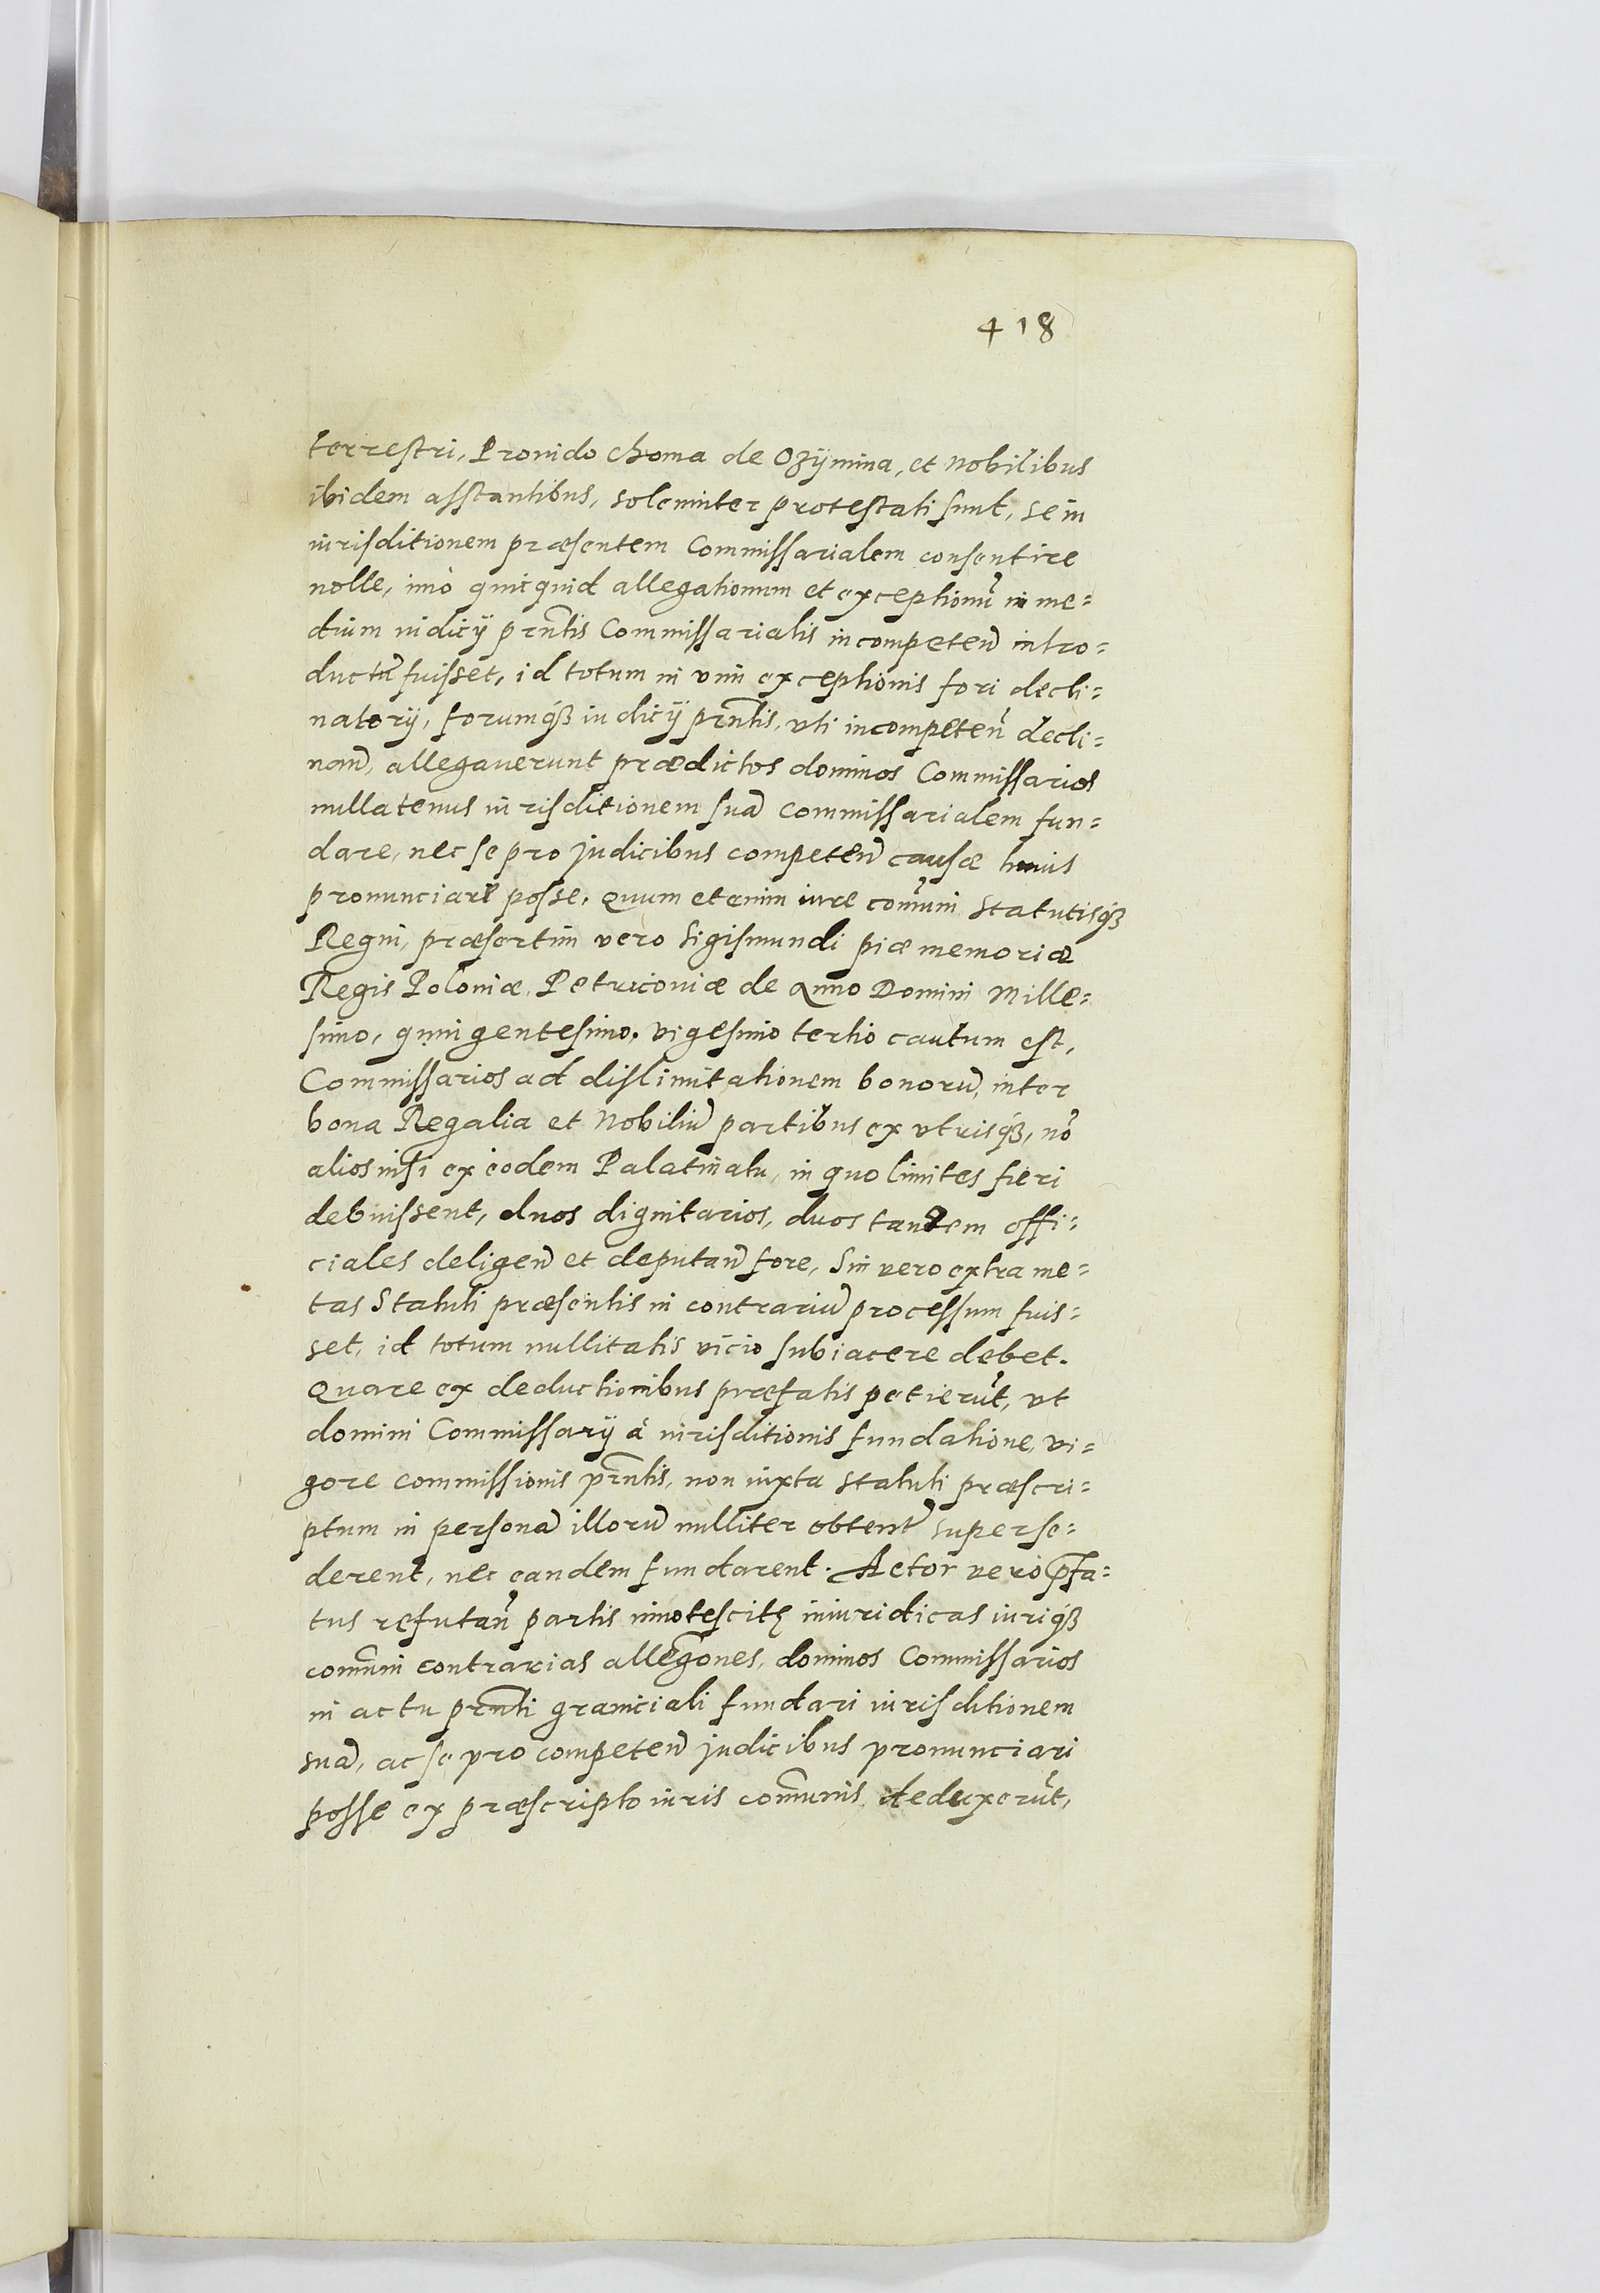 418
terrestri, Prouido Choma de Ozÿmina, et Nobilibus
ibidem asstantibus, solenniter protestati sunt, se in
iurisditionem præsentem Commissarialem consentire
nolle, imò quicquid allegationum et exceptionū in me=
dium iudicÿ prn̄tis Commissarialis incompeten̄ intro=
ductū fuisset, id totum in vim exceptionis fori decli=
natorÿ, forumqȝ iudicÿ prn̄tis, vti incompeten̄ decli=
nan̄, allegauerunt prædictos dominos Commissarios
nullatenus iurisditionem suā Commissarialem fun=
dare, nec se pro judicibus competen̄ causæ huius
pronunciare posse, Quum etenim iure com̄uni statutisqȝ
Regni, præsertim vero Sigismundi piæ memoriæ
Regis Poloniæ, Petricouiæ de Anno Domini Mille=
simo, quingentesimo, vigesimo tertio cautum est,
Commissarios ad dislimitationem bonorū, inter
bona Regalia et Nobiliū partibus ex vtrisqȝ, nō
alios nisi ex eodem Palatinatu, in quo limites fieri
debuissent, duos dignitarios, duos tandem offi=
ciales deligen̄ et deputan̄ fore, Sin vero extra me=
tas Statuti præsentis in contrariū processum fuis=
set, id totum nullitatis vicio subiacere debet.
Quare ex deductionibus præfatis petierūt, vt
domini Commissarÿ à iurisditionis fundatione, vi=
gore commissionis prn̄tis, non iuxta statuti præscri=
ptum in personā illorū nulliter obtent̄ superse=
derent, nec eandem fundarent. Actor vero p̄fa=
tus refutan̄ partis innotescitę iniuridicas iuriqȝ
com̄uni contrarias alleḡones, dominos Commissarios
in actu prn̄ti graniciali fundari iurisditionem
suā, ac se pro competen̄ judicibus pronunciari
posse ex præscripto iuris com̄unis deduxerūt,